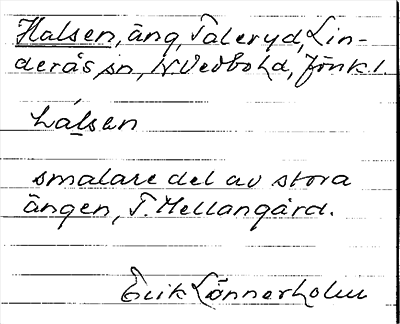 Halsen, äng, Taleryd, Lin-
derås sn, N Vedbo hd, Jönk l.
hálsen
smalare del av stora
ängen, T. Mellangård.
Erik Lönnerholm